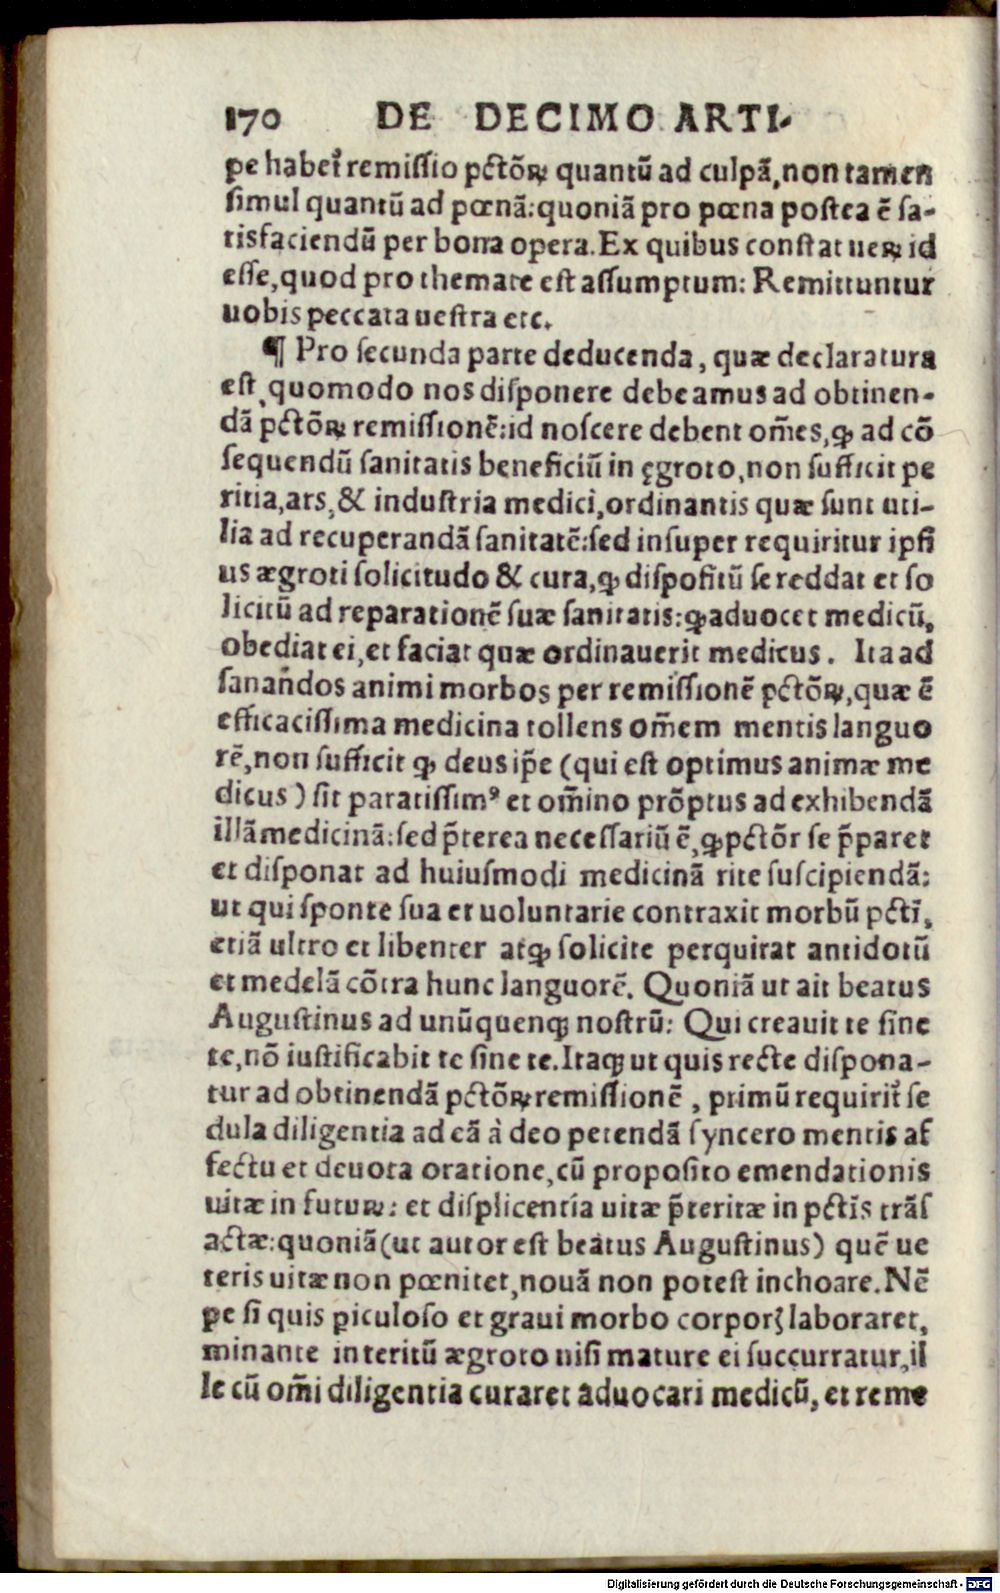 170 DE DECIMO ARTI-
pe habet᷑ remissio pctõꝝ quantũ ad culpã, non tamen
simul quantũ ad pœnã: quoniã pro pœna postea ẽ sa-
tisfaciendũ per bona opera. Ex quibus constat ueꝝ id
esse, quod pro themate est assumptum: Remittuntur
uobis peccata uestra etc.
¶ Pro secunda parte deducenda, quæ declaratura
est, quomodo nos disponere debeamus ad obtinen-
dã pctõꝝ remissionẽ: id noscere debent om̃es, ꝙ ad cõ
sequendũ sanitatis beneficiũ in ęgroto, non sufficit pe
ritia, ars, & industria medici, ordinantis quæ sunt uti-
lia ad recuperandã sanitatẽ: sed insuper requiritur ipsi
us ægroti solicitudo & cura, ꝙ dispositũ se reddat et so
licitũ ad reparationẽ suæ sanitatis: ꝙ aduocet medicũ,
obediat ei, et faciat quæ ordinauerit medicus. Ita ad
sanandos animi morbos per remissionẽ pctõꝝ, quæ ẽ
efficacissima medicina tollens om̃em mentis languo
rẽ, non sufficit ꝙ deus ip̃e (qui est optimus animæ me
dicus) sit paratissimꝰ et om̃ino prõptus ad exhibendã
illã medicinã: sed p̃terea necessariũ ẽ, ꝙ pctõr se p̃paret
et disponat ad huiusmodi medicinã rite suscipiendã:
ut qui sponte sua et uoluntarie contraxit morbũ pcti̅,
etiã ultro et libenter atꝙ solicite perquirat antidotũ
et medelã cõtra hunc languorẽ. Quoniã ut ait beatus
Augustinus ad unũquenꝙ nostrũ: Qui creauit te sine
te, nõ iustificabit te sine te. Itaꝙ ut quis recte dispona-
tur ad obtinendã pctõꝝ remissionẽ, primũ requirit᷑ se
dula diligentia ad eã à deo petendã syncero mentis af
fectu et deuota oratione, cũ proposito emendationis
uitæ in futuꝝ: et displicentia uitæ p̃teritæ in pcti̅s trãs
actæ: quoniã (ut autor est beatus Augustinus) quẽ ue
teris uitæ non pœnitet, nouã non potest inchoare. Nẽ
pe si quis ꝑiculoso et graui morbo corporꝭ laboraret,
minante interitũ ægroto nisi mature ei succurratur, il
le cũ om̃i diligentia curaret aduocari medicũ, et reme
Digitalisierung gefördert durch die Deutsche Forschungsgemeinschaft - DFG